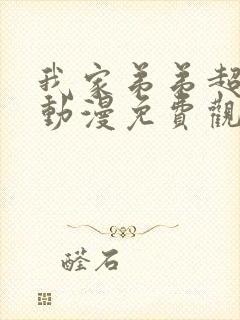 我家弟弟超
動漫免費觀
醛石